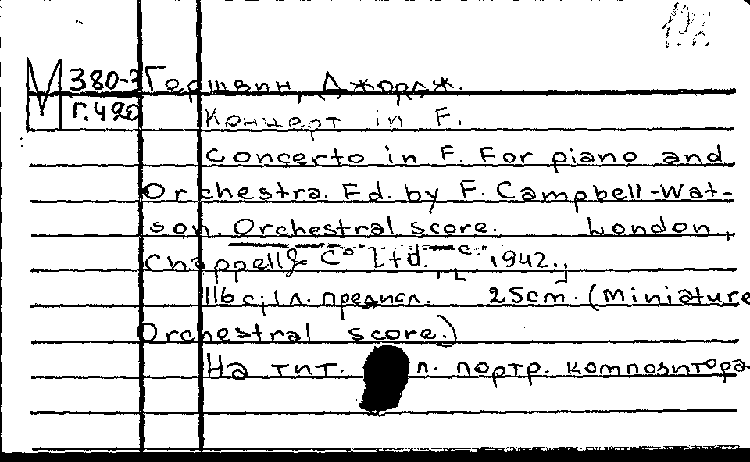 М 380-3 Гершвин, Джордж.
Г.420 Концерт in F.
Concerto in F. For piano and
Orchestra. Ed. by F. Campbell-Wat-
son. Orchestral score. London,
Chappell & Cº Ltd. 1942.
116 с; 1 л. предисл. 25cm. (Miniature
Orchestral score.)
На тит. л. портр. композитора